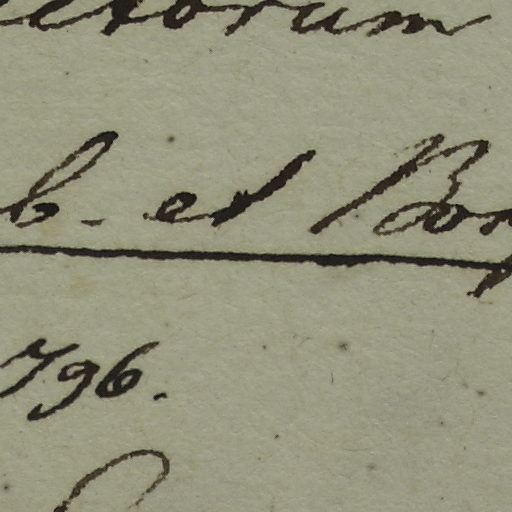 ectorum
b. et Bor
796.